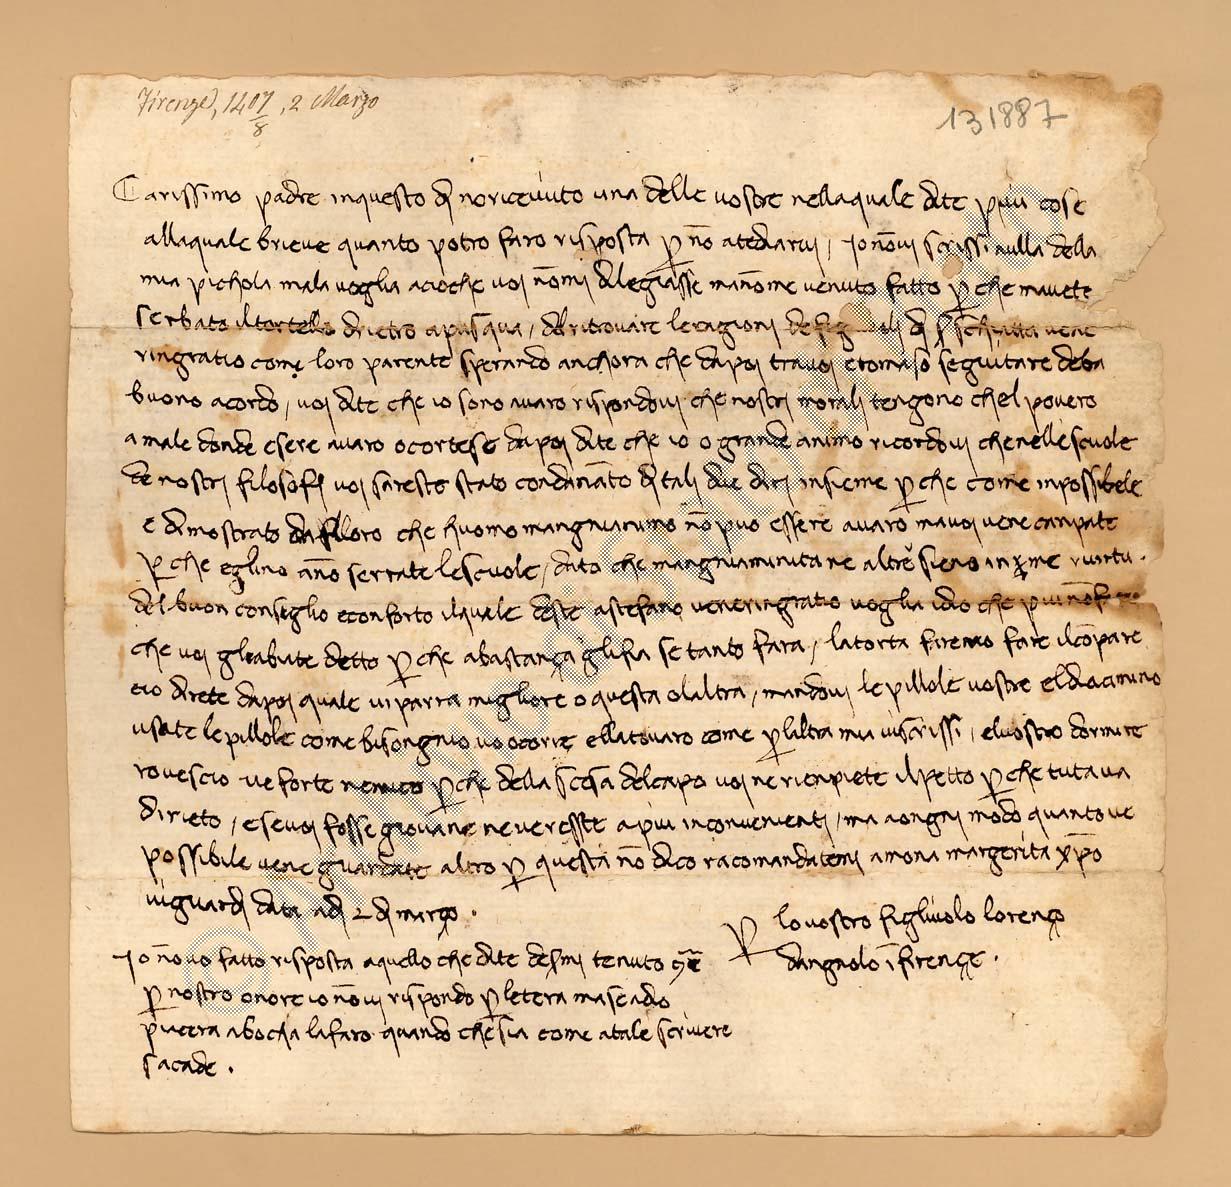 Firenze, 1407/8, 2 Marzo
131887
Carissimo padre inquesto dì noricevuto una delle vostre nellaquale dite più cose
allaquale brieve quanto potro faro risposta p nō atediarvi / Io nōvi scrissi nulla della
mia pichola mala voglia acioche voi nōmi dilegiassē manōme venuto fatto p che mavete
serbato il tortello drietro apasqua / del ritrovare leragioni di s vene
ringratio come loro parente sperando anchora che dapoi travoi etomaso seguitare deba
buono acordo / voi dite che io sono avaro rispondovi che nostri morali tengono chel povero
a male donde esere avaro o cortese dapoi dite che io o grande animo ricordovi chenelle scuole
de nostri filosofi voi saresto stato condānato di tali due diri insieme p che come inpossibele
e dimostrato da lloro che huomo mangnianimo nō puo essere avaro mavoi vene canpate
p che eglino āno serrate le scuole / dato che mangniaminita ne altre sieno in me virtu .
del buon conseglio econforto ilquale deste astefano veneringratio voglia idio che piu nō
che voi gliabiate detto p che abastança glifia se tanto fara / latorta faremo fare ilcōpare
e io direte dapoi quale vi parra migliore o questa olaltra / mandovi le pillole vostre el diacimino
usate le pillole come bisongnio vo ocorre ellatovaro come p laltra mia viscrissi / elvostro dormire
rovescio ve forte nemico p che della scesa delcapo voi ne rienpiete il petto p che tutava
dirieto / e sevoi fosse giovane neveresste apiu inconvenienti / ma aongni modo quantove
possibile vene guardate altro p questa nō dico racomandatemi amona margerita xpo
viguardi data adì 2 di março .
P lo vostro figliuolo lorenço
dangnolo ī firençe .
Io nōvo fatto risposta aquello che dite desmi tenuto
p nostro onore io nōvi rispondo p letera maseadio
piacera abocha lafaro quando chesia come atale scrivere
sacade .